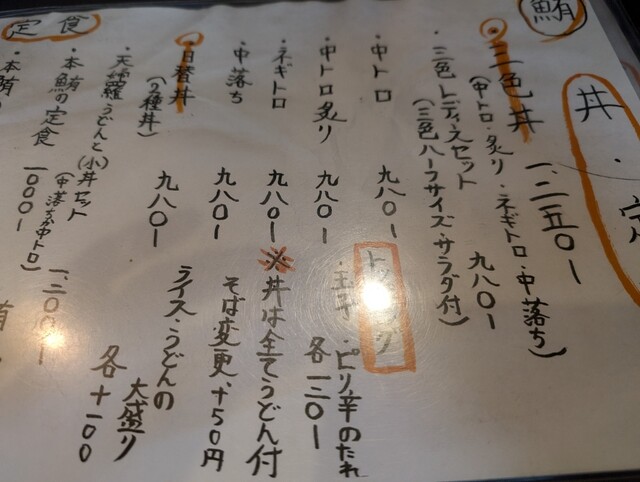 鮪
丼・定
三色丼 一、二五〇ー
(中トロ・炙り・ネギトロ・中落ち)
・三色レディースセット 九八〇ー
(三色ハーフサイズ・サラダ付)
・中トロ 九八〇ー
・中トロ炙り 九八〇ー
・ネギトロ 九八〇ー
・中落ち 九八〇ー
日替丼 九八〇ー
(2種丼)
トッピング
・玉子・ピリ辛のたれ
各一三〇ー
※丼は全てうどん付
そば変更、+50円
ライス・うどんの
大盛り
各+100
定食
・天ぷらうどんと(小)丼セット
(中落ちか中トロ) 一、二〇〇ー
・本鮪の定食 一〇〇〇ー
・本鮪